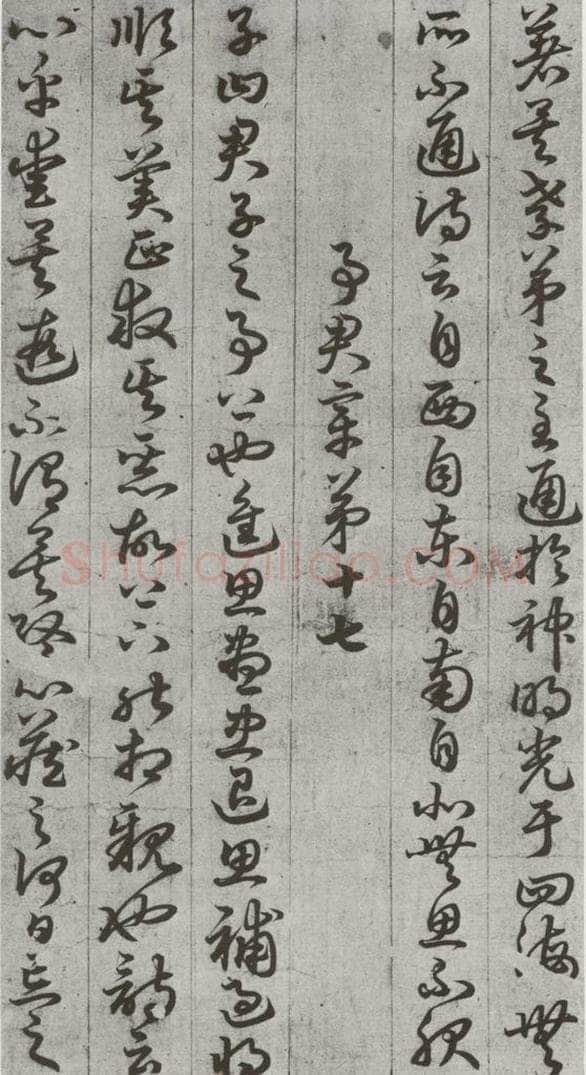 著矣孝弟之至通於神明光于四海無
所不通詩云自西自東自南自北無思不服
事君章第十七
子曰君子之事上也進思盡忠退思補過將
順其美匡救其惡故上下能相親也詩云
心乎愛矣遐不謂矣終心藏之何日忘之
Shufaziliao.COM